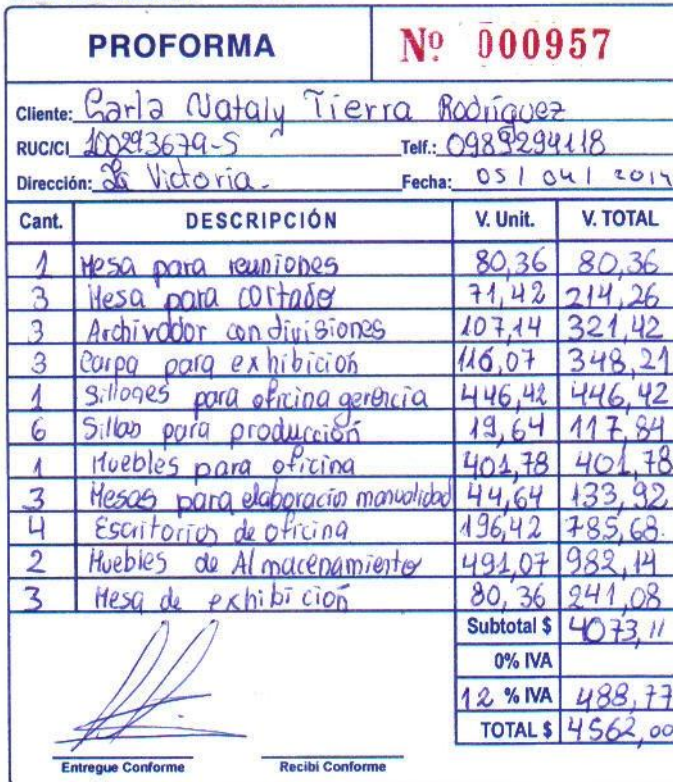 PROFORMA Nº 000957
Cliente: Carla Nataly Tierra Rodríguez
RUC/CI 100293679-5 Telf.: 0989294118
Dirección: La Victoria. Fecha: 05 / 04 / 2014
Cant. DESCRIPCIÓN V. Unit. V. TOTAL
1 Mesa para reuniones 80,36 80,36
3 Mesa para cortado 71,42 214,26
3 Archivador con divisiones 107,14 321,42
3 Carpa para exhibición 116,07 348,21
1 Sillones para oficina gerencia 446,42 446,42
6 Sillas para producción 19,64 117,84
1 Muebles para oficina 401,78 401,78
3 Mesas para elaboracio manualidad 44,64 133,92
4 Escritorios de oficina 196,42 785,68.
2 Muebles de Almacenamiento 491,07 982,14
3 Mesa de exhibición 80,36 241,08
Subtotal $ 4073,11
0% IVA
12 % IVA 488,77
TOTAL $ 4562,00
Entregue Conforme Recibi Conforme